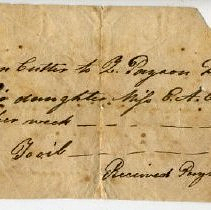 n Cutter to L. Payson D
daughter Miss E. A. C
er week
Received Pay